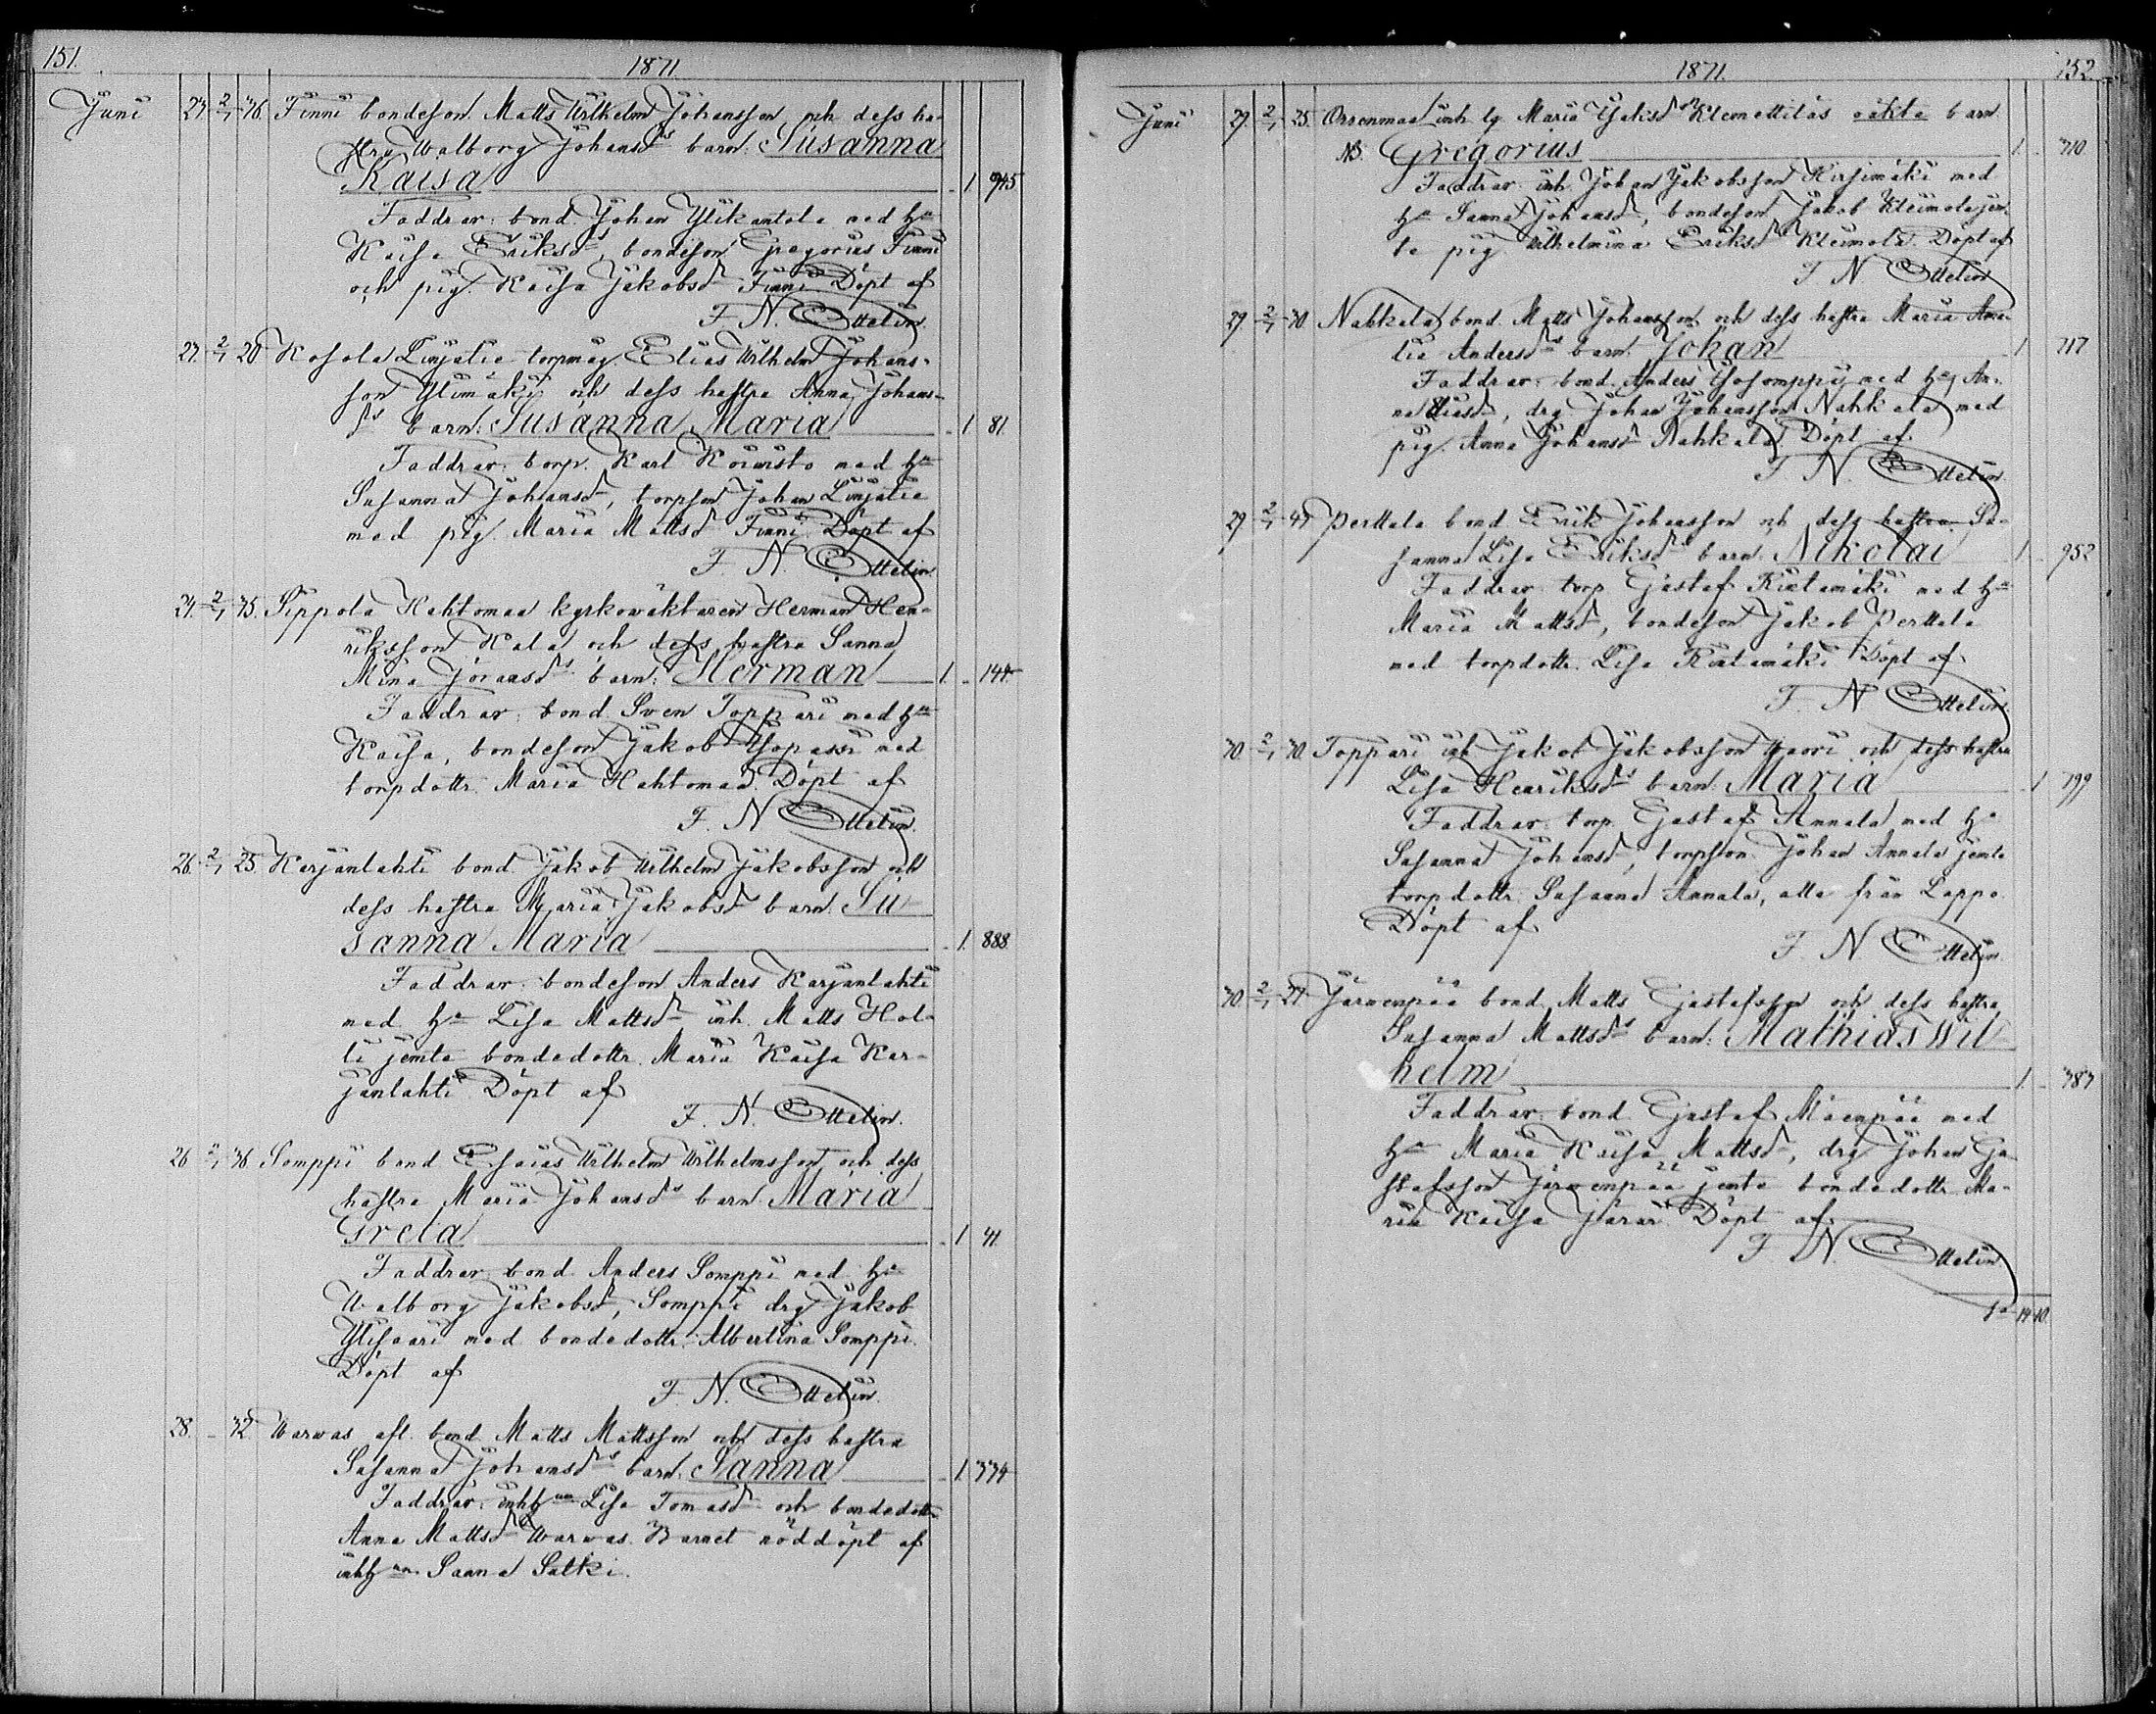 151.
1871.
Juni 23. 2/7 36. Finni bondeson Matts Wilhelm Johansson och dess hu-
stru Walborg Johansdrs barn: Susanna
Kaisa 1 945
Faddrar: bond Johan Ylikantola med hu
Kaisa Eriksdr, bondeson Gregorius Finni
och pig. Kaisa Jakobsdr Finni Döpt af
F. N. Ottelin.
23. 2/7 20 Kosola Linjalie torpmåg Elias Wilhelm Johans-
son Ylimäki och dess hustru Anna Johans-
drs barn: Susanna Maria 1 81.
Faddrar: torp. Karl Koiwisto med hu
Susanna Johansdr, torpson Johan Linjalie
med pig. Maria Mattsdr Finni Döpt af
F. N. Ottelin.
24. 2/7 35. Sippola Hahtomaa kyrkowäktaren Herman Hen-
riksson Kala och dess hustru Sanna
Mina Göransdrs barn: Herman 1. 144.
Faddrar: bond Sven Toppari med hu
Kaisa, bondeson Jakob med
torpdottr. Maria Hahtomaa. Döpt af
F. N. Ottelin.
26. 2/7 25. Karjanlahti bond. Jakob Wilhelm Jakobsson och
dess hustru Maria Jakobsdrs barn. Su-
sanna Maria 1. 888
Faddrar: bondeson Anders Karjanlahti
med hu Lisa Mattsdr inh. Matts Hol-
ti jemte bondedottr. Maria Kaisa Kar-
janlahti Döpt af
F. N. Ottelin.
26 2/7 36. Somppi bond Esaias Wilhelm Wilhelmsson och dess
hustru Maria Johansdrs barn. Maria
Greta 1 41.
Faddrar bond. Anders Somppi med hu
Walborg Jakobsdr, Somppi drg Jakob
Ylisaari med bondedottr. Albertina Somppi.
Döpt af
F. N. Ottelin.
28. - 32. Warwas afl. bond Matts Mattsson och dess hustru
Susanna Johansdrs barn. Sanna 1 334
Faddrar: inhhun Lisa Tomasdr och bondedottr.
Anna Mattsdr Warwas. Barnet nöddöpt af
inhhun Sanna Salki.
1871.
152.
Juni 29. 2/7 25. Orrenmaa inh. lg. Maria Jaksdr Klemettiläs oäkta barn
NB. Gregorius 1. 710
Faddrar: inh. Johan Jakobsson Hirsimäki med
hu Sanna Johansdr, bondeson Jakob Kleimola jem-
te pig Wilhelmina Eriksdr Kleimola. Döpt af
F. N. Ottelin
29. 2/7 30 Nahkala bond. Matts Johansson och dess hustru Maria Ama-
lia Andersdrs barn. Johan 1 717
Faddrar: bond. Anders Isosomppi med hu An-
na Eliasdr, drg Johan Johansson Nahkala med
pig. Anna Johansdr Nahkala Döpt af
F. N. Ottelin.
29. 2/7 43 Perttala bond Erik Johansson och dess hustru Su-
sanna Lisa Eriksdrs barn. Nikolai 1 952
Faddrar torp Gustaf Rietamäki med hu
Maria Mattsdr, bondeson Jakob Perttala
med torpdottr. Lisa Rietamäki Döpt af
F. N. Ottelin.
30. 2/7 30. Toppari inh Jakob Jakobsson Waori och dess hustru
Lisa Henriksdrs barn. Maria 1 799
Faddrar: torp. Gustaf Annala med hu
Susanna Johansdr, torpson. Johan Annala jemte
torpdottr. Susanna Annala, alla från Lappo.
Döpt af
F. N. Ottelin
30. 2/7 27. Järwenpää bond Matts Gustafsson och dess hustru
Susanna Mattsdrs barn: Mathias Wil-
helm 1 383
Faddrar: bond Gustaf Mäenpää med
hu Maria Kaisa Mattsdr, drg Johan Gu-
stafsson Järwenpää jemte bondedottr Ma-
ria Kaisa Döpt af
F. N. Ottelin.
Sa 14. 10.